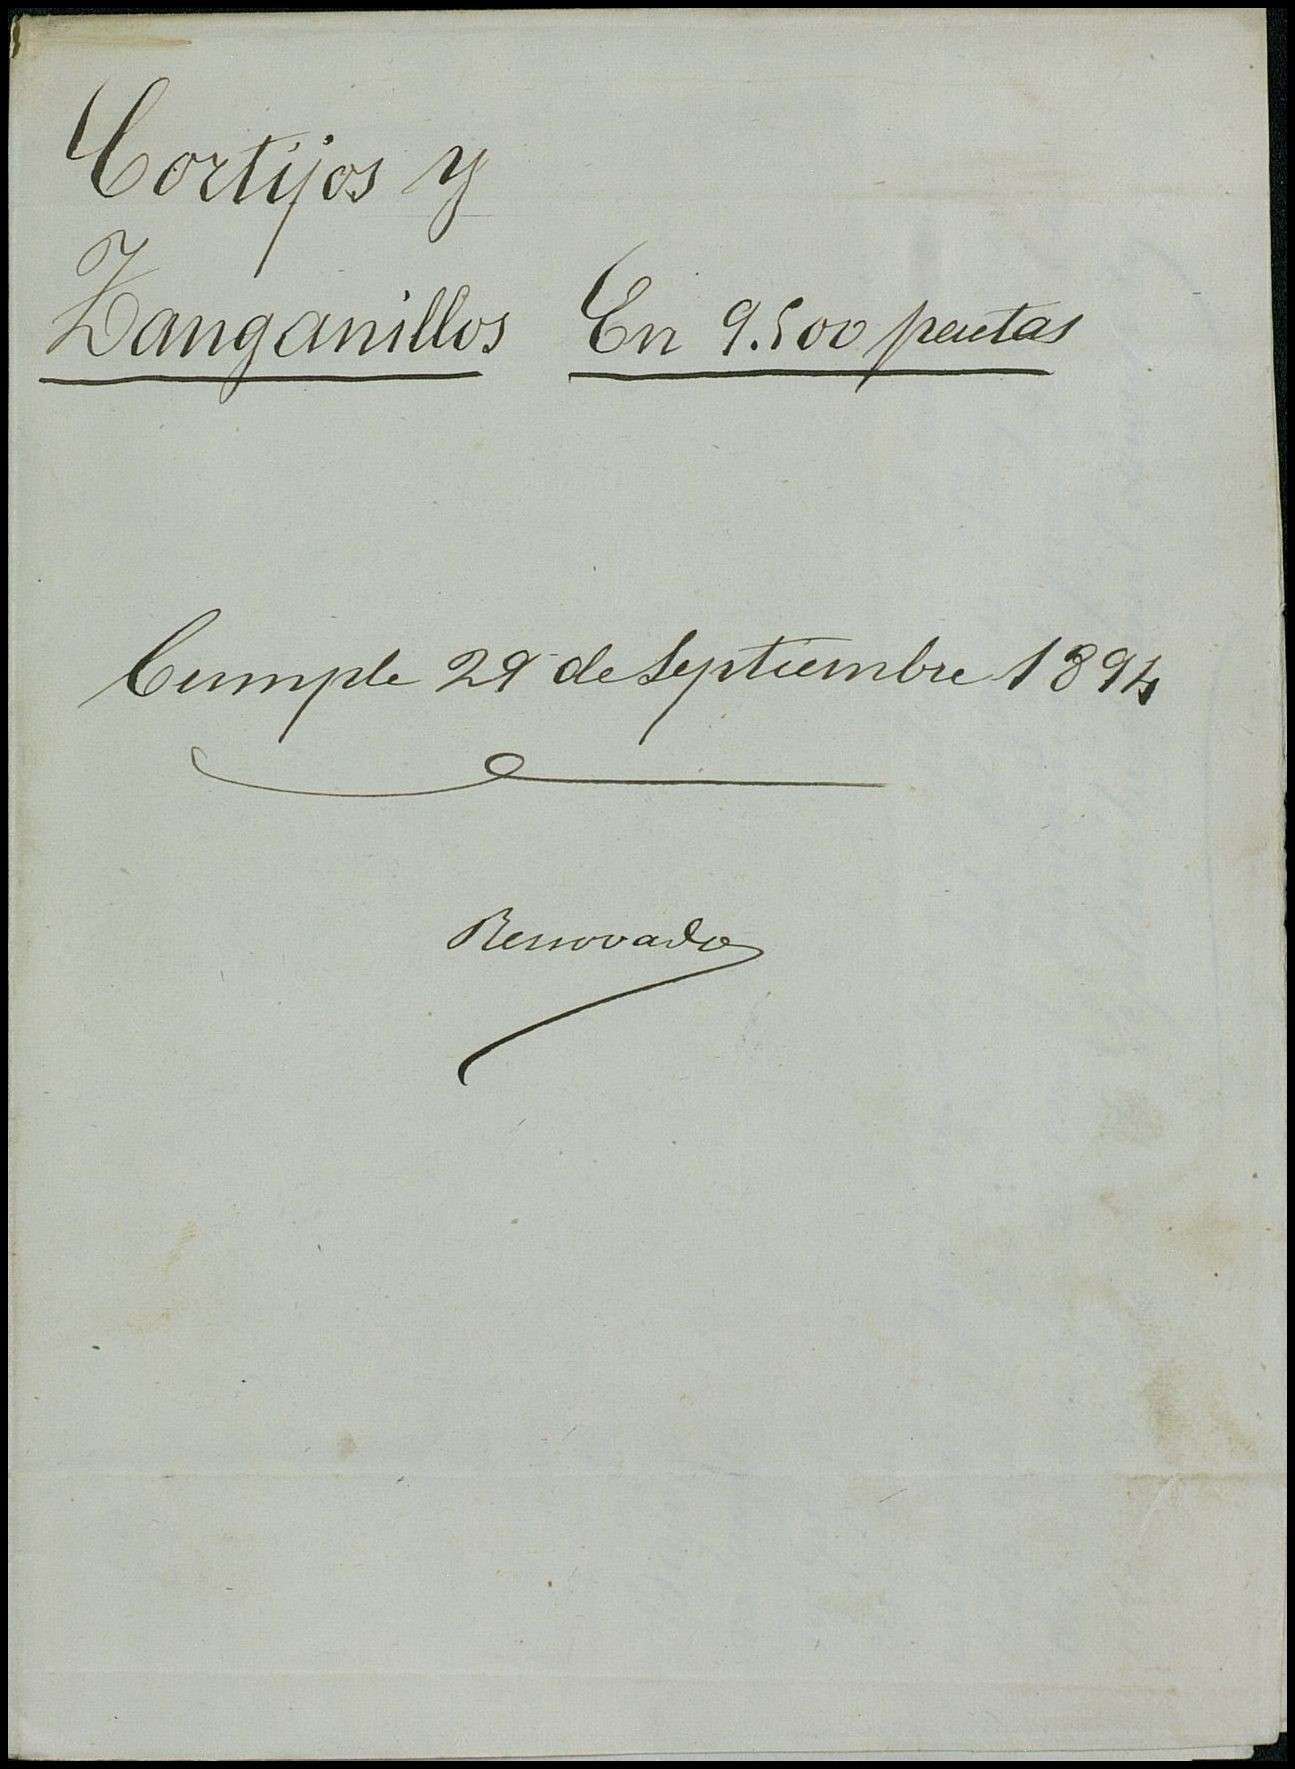 Cortijos y
Zanganillos En 9.500 pesetas
Cumple 29 de Septiembre 1894
Renovado